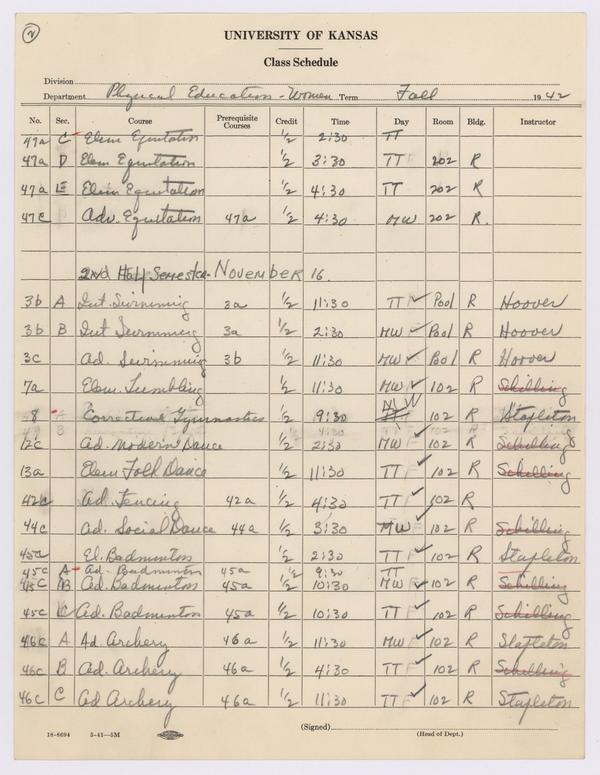 2
UNIVERSITY OF KANSAS
Class Schedule
Division
Department Physical Education - Women Term Fall 1942
No. Sec. Course Prerequisite Courses Credit Time Day Room Bldg. Instructor
47a C Elem Equitation 1/2 2:30 TT
47a D Elem Equitation 1/2 3:30 TT 202 R
47a E Elem Equitation 1/2 4:30 TT 202 R
47c Adv. Equitation 47a 1/2 4:30 MW 202 R.
2nd Half Semester - November 16.
3b A Int Swimming 3a 1/2 11:30 TT Pool R Hoover
3b B Int Swimming 3a 1/2 2:30 MW Pool R Hoover
3c Ad. Swimming 3b 1/2 11:30 MW Pool R Hoover
7a Elem. Tumbling 1/2 11:30 MW 102 R Schilling
8 Corrective Gymnastics 1/2 9:30 MW 102 R Stapleton
12c Ad. Modern Dance 1/2 2:30 MW 102 R Schilling
13a Elem Folk Dance 1/2 11:30 TT 102 R Schilling
42c Ad. Fencing 42a 1/2 4:30 TT 102 R
44c Ad. Social Dance 44a 1/2 3:30 MW 102 R Schilling
45a El. Badminton 1/2 2:30 TT 102 R Stapleton
45c A Ad. Badminton 45a 1/2 9:30 TT
45c B Ad. Badminton 45a 1/2 10:30 MW 102 R Schilling
45c C Ad. Badminton 45a 1/2 10:30 TT 102 R Schilling
46c A Ad. Archery 46a 1/2 11:30 MW 102 R Stapleton
46c B Ad. Archery 46a 1/2 4:30 TT 102 R Schilling
46c C Ad Archery 46a 1/2 11:30 TT 102 R Stapleton
(Signed)
(Head of Dept.)
18-8694 5-41-5M